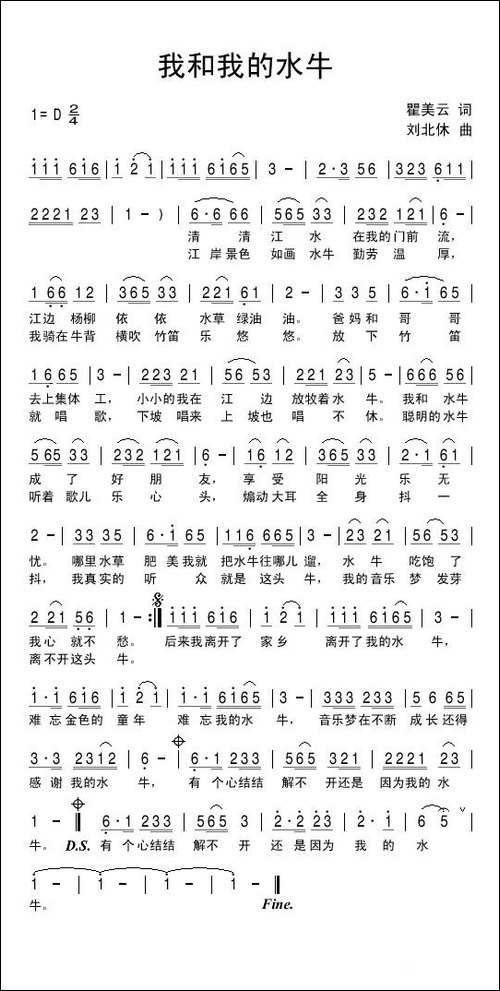 我和我的水牛
1=D 2/4
瞿美云 词
刘北休 曲
111 616 | 1 2 1 | 111 6165 | 3 - | 2·3 56 | 323 611 |
2221 23 | 1 - ) | 6·6 66 | 565 33 | 232 121 | 6 - |
清 清 江 水 在我的门前 流,
江 岸景色 如画 水牛 勤劳 温 厚,
1 66 12 | 365 33 | 221 61 | 2 - | 2 3 35 | 6·1 65 |
江边 杨柳 依 依 水草 绿油 油。 爸妈 和 哥 哥
我骑在牛背 横吹 竹笛 乐 悠 悠。 放 下 竹 笛
去上集体 工, 小小的我在 江 边 放牧着水 牛。 我和 水牛
就 唱 歌, 下坡 唱来 上 坡也 唱 不 休。 聪明的水牛
5 65 33 | 232 121 | 6 - | 16 12 | 365 33 | 2·1 61 |
成 了 好 朋 友, 享 受 阳 光 乐 无
听着 歌儿 乐 心 头, 煽动大耳 全 身 抖 一
2 - | 33 35 | 6·1 65 | 116 665 | 3 - | 23 21 | 56 53 |
忧。 哪里水草 肥 美我就 把水牛往哪儿 遛, 水 牛 吃饱 了
抖, 我真实的 听 众 就是 这头 牛, 我的音乐 梦 发芽
2 21 56 | 1 - :‖ 111 616 | 1 2 1 | 111 6165 | 3 - |
我心 就不 愁。 后来我离开了 家乡 离开了我的水 牛,
离不开这头 牛。
1·1 616 | 1 2 1 | 1·1 6165 | 3 - | 333 2233 | 5 6 65 |
难忘金色的 童年 难忘我的水 牛, 音乐梦在不断 成长还得
3·3 2312 | 6 - | 6·1 233 | 565 321 | 2221 23 |
感 谢 我的水 牛, 有 个心结结 解不 开还是 因为我的 水
1 - ‖ 6·1 233 | 565 3 | 2·2 23 | 1· 2 | 6 5 |
牛。 D.S. 有 个心结结 解不 开 还 是因为 我 的 水
1 - | 1 - | 1 - | 1 - ‖
牛。 Fine.